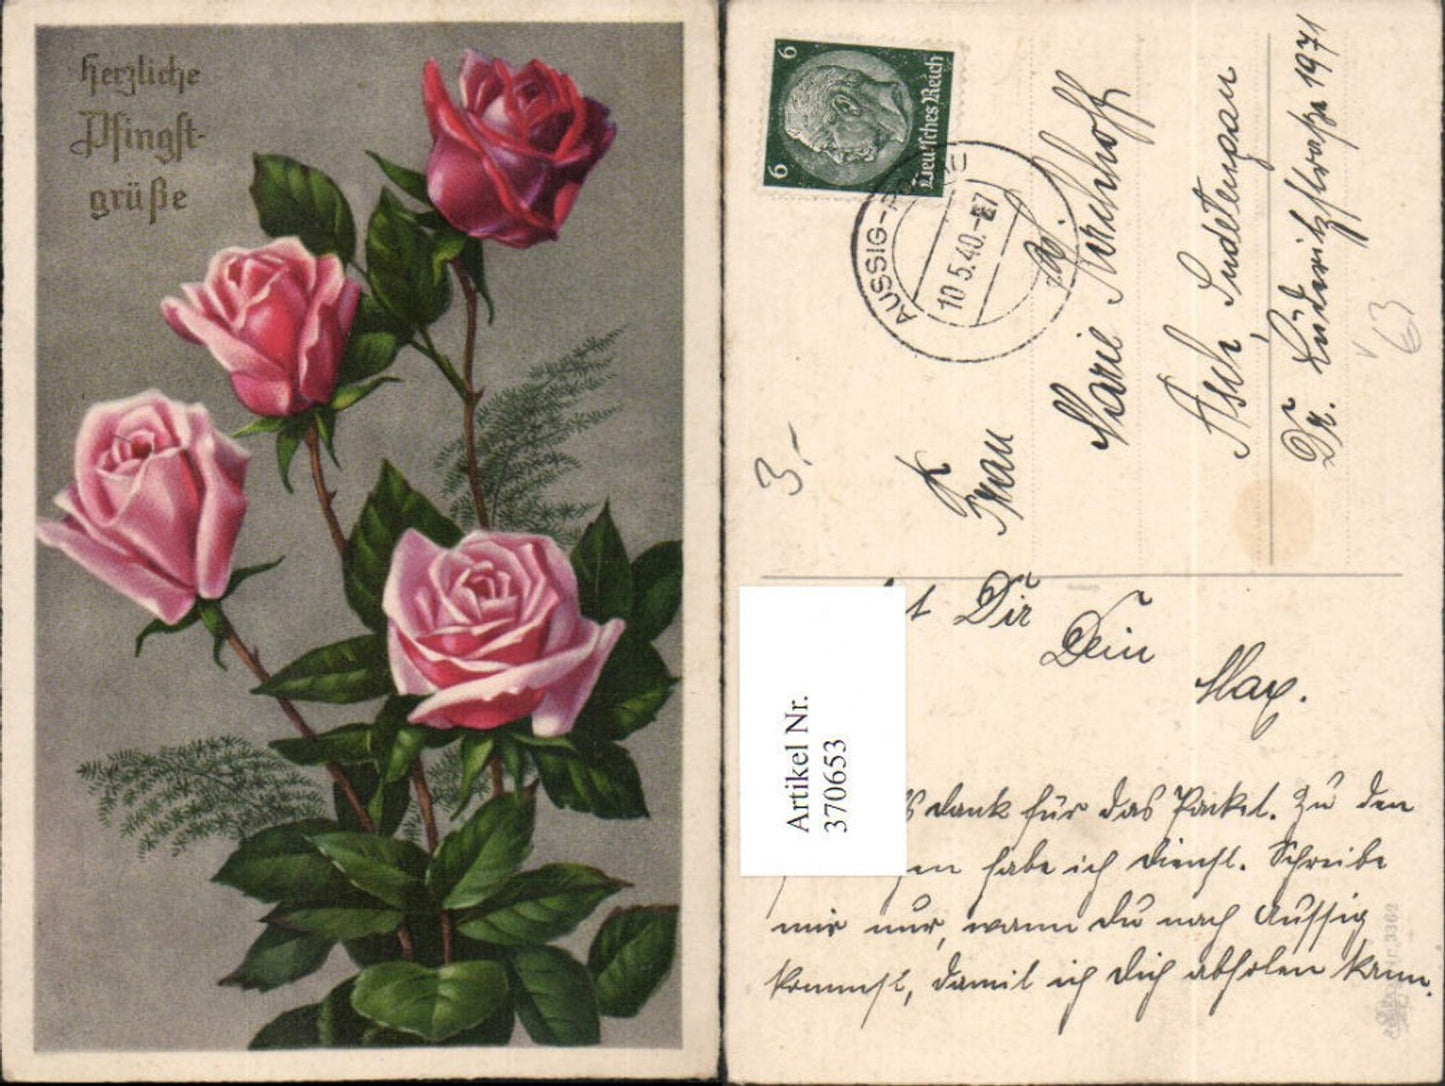 Herzliche
Pfingst-
grüße
6
6
Deutsches Reich
AUSSIG-
10.5.40.-
3.-
Frau
Marie Kirchhoff
Asch, Sudetengau
Dr. Lüderitzstraße 1971
63
t Dir
Dein
Max.
Artikel Nr.
370653
dank für das Packet. Zu den
habe ich Dienst. Schreibe
mir nur, wann Du nach Aussig
kommst, damit ich Dich abholen kann.
Nr. 3362